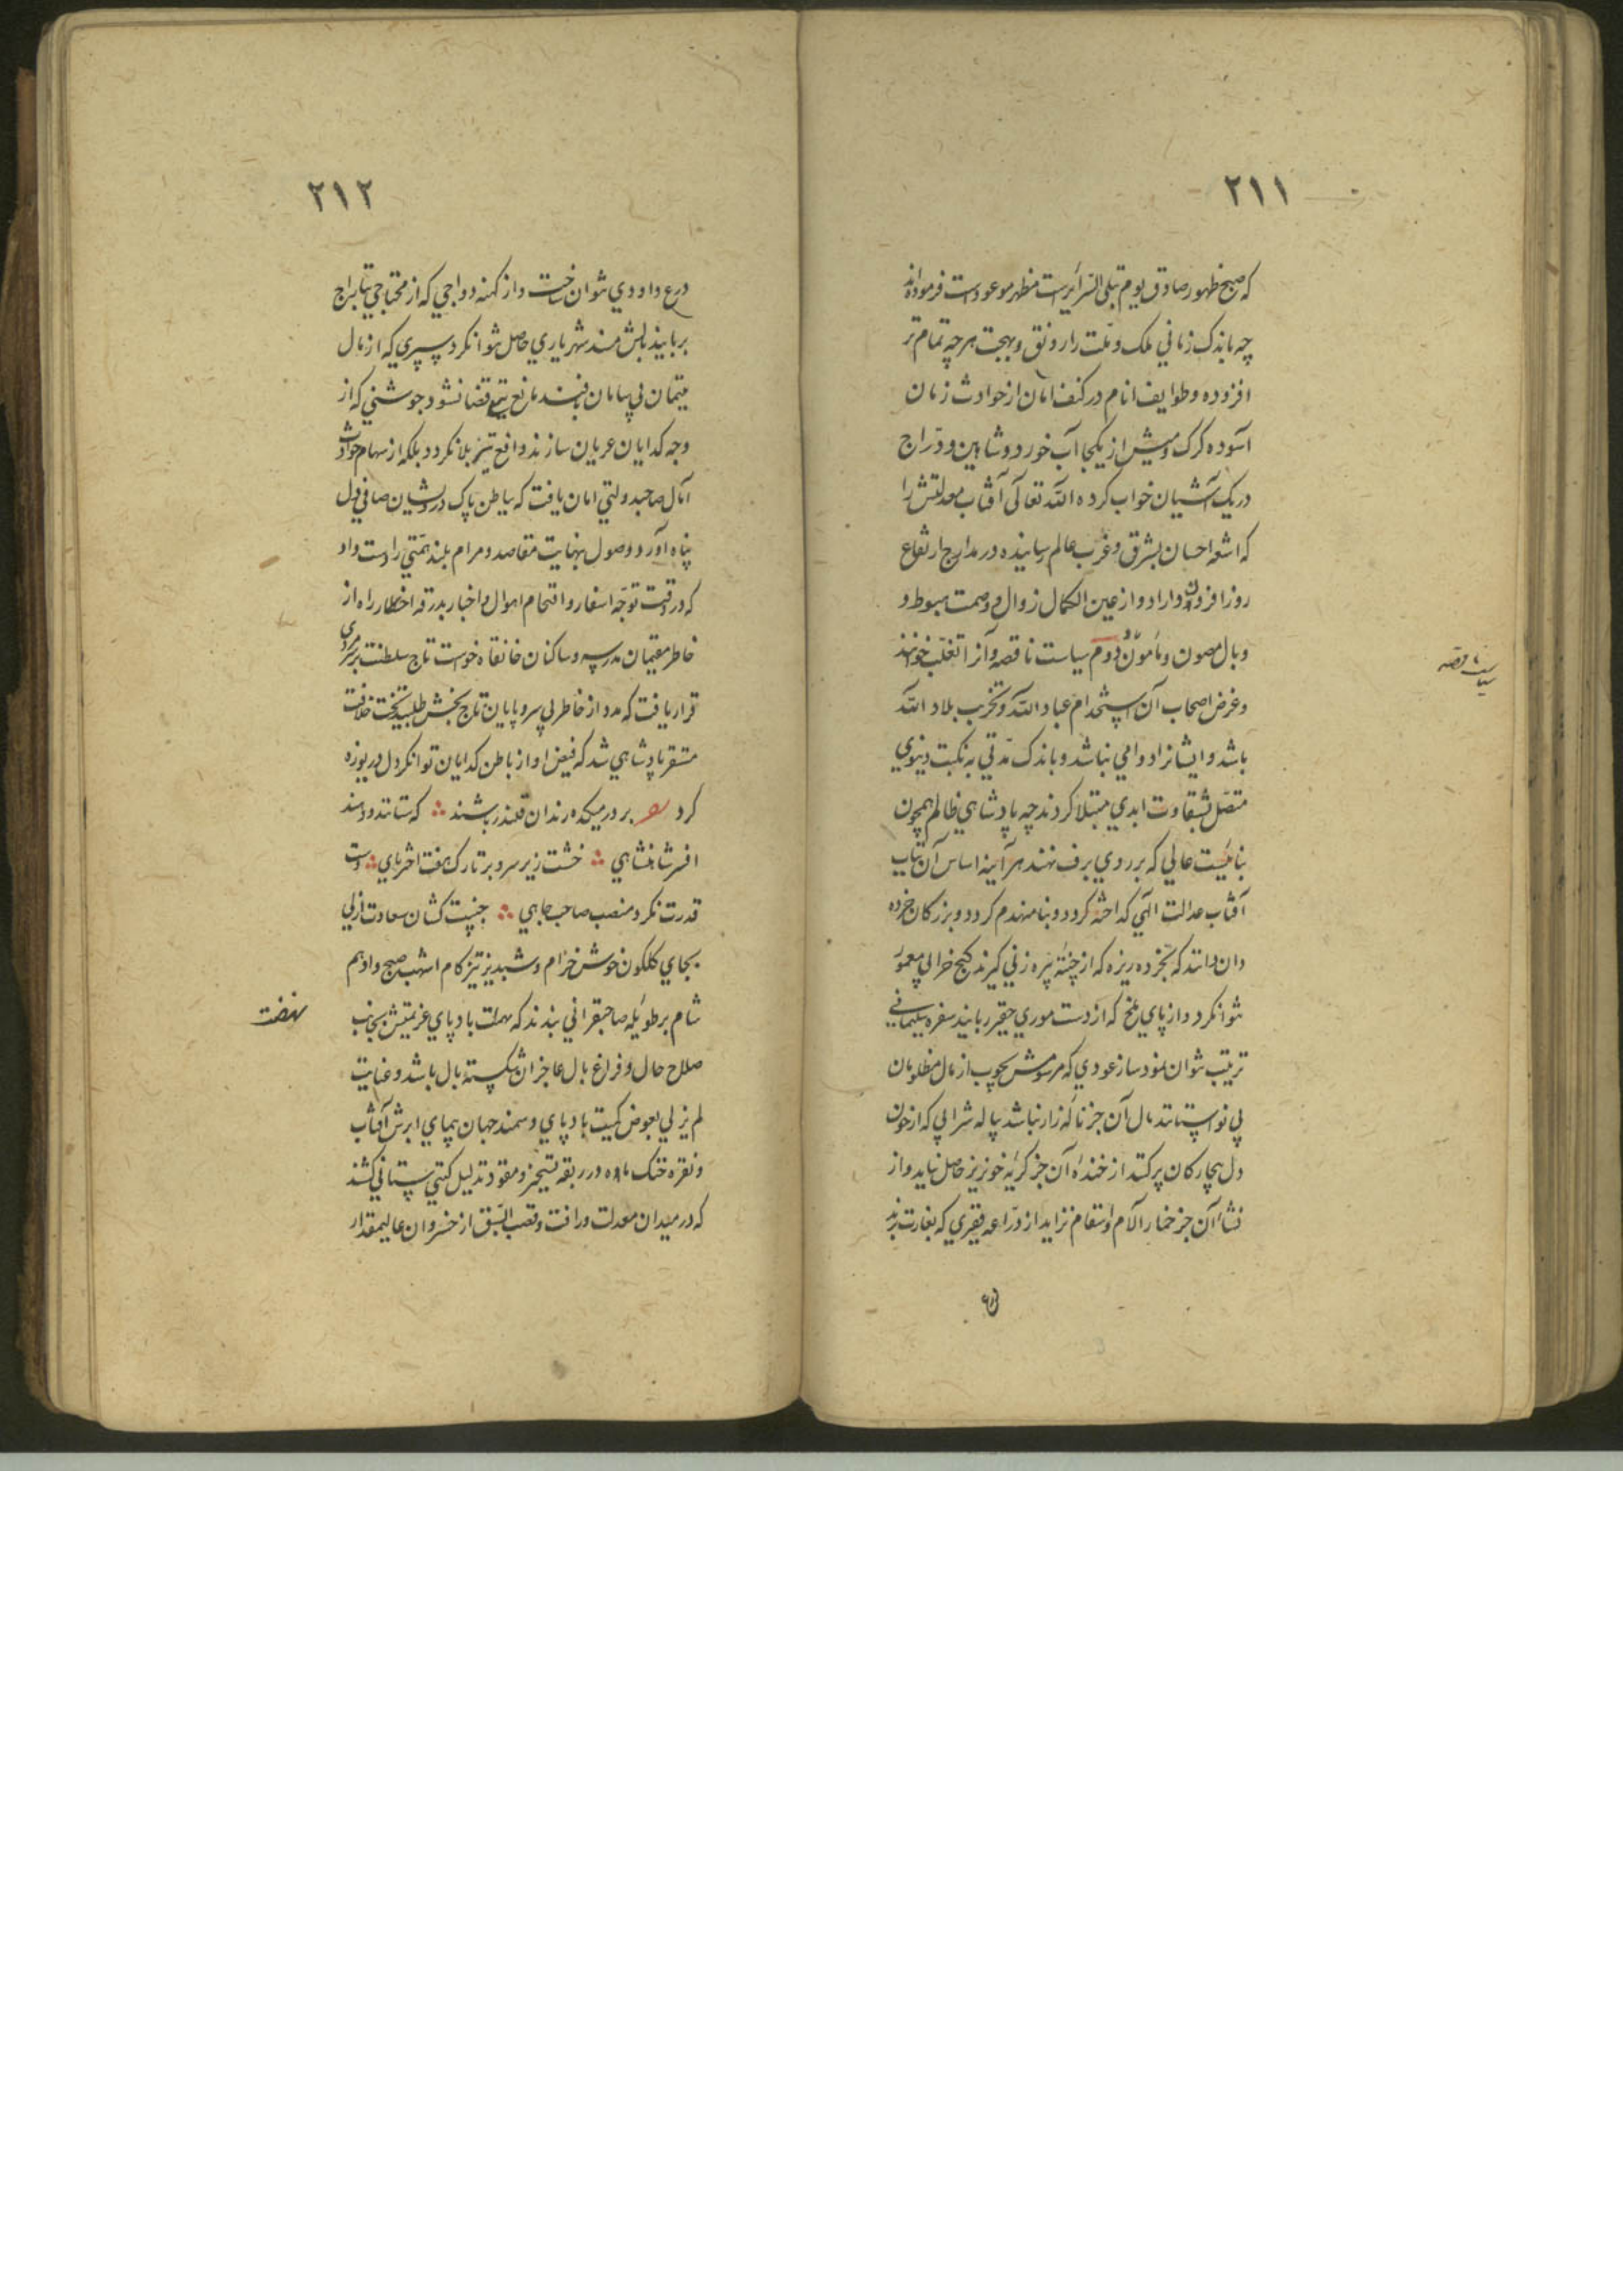 ٢١١
که صبح ظهور صادق یوم تبلی السرائرست مظهر موعودست فرموده‌اند
چه باندک زمانی ملک و ملت را رونق و بهجت هر چه تمام تر
افزوده و طوایف انام در کنف امان از حوادث زمان
آسوده کرک و میش از یکجا آب خورد و شاهین و دراج
در یک آشیان خواب کرده الله تعالی آفتاب معدلتش را
که اشعه احسان بشرق و غرب عالم رسانیده در مدارج ارتفاع
روز افزون داراد و از عین الکمال زوال و وصمت هبوط و
وبال مصون و مأمون دوم سیاست ناقصه و آنرا تغلب خوانند
و غرض اصحاب آن استخدام عباد الله و تخریب بلاد الله
باشد و ایشانرا دوامی نباشد و باندک مدتی به نکبت دنیوی
متصل بشقاوت ابدی مبتلا کردند چه پادشاهی ظالم همچون
بنائیست عالی که بر روی برف نهند هر آینه اساس آن بتاب
آفتاب عدالت الهی کداخته کردد و بنا منهدم کردد و بزرکان خرده
دان دانند که بخرده ریزه که از چنته پیره زنی کیرند کنج خرابی معمور
نتوانکرد و از پای ملخ که از دست موری حقیر ربایند سفره سلیمانی
ترتیب نتوان نمود ساز عودی که بچوب از مال مظلومان
بی نوا ستانند مال آن جز ناله زار نباشد پیاله شرابی که از خون
دل بیچارکان پر کنند از خنده آن جز کریه خونریز حاصل نیاید و از
نشاء آن جز خمار آلام و انتقام نزاید از دراعه فقیری که بغارت برند
سیاست ناقصه
٢١٢
درع داودی نتوان ساخت و از کهنه دواجی که از محتاجی بتاراج
بربایند بالش مسند شهریاری حاصل نتوانکرد سپری که از مال
یتیمان بی سامان بافند مانع تیغ قضا نشود جوشنی که از
وجه کدایان عریان سازند دافع تیر بلا نکردد بلکه از سهام حوادث
آمال صاحبدولتی امان یافت که بباطن پاک درویشان صافی دل
پناه آورد و وصول بنهایت مقاصد و مرام بلند همتی را دست داد
که در وقت توجه اسفار و اقتحام اهوال و اخطار بدرقه راه از
خاطر مقیمان مدرسه و ساکنان خانقاه خواست تاج سلطنت بر سری
قرار یافت که مدد از خاطر بی سر و پایان تاج بخش طلبید تخت خلافت
مستقر پادشاهی شد که فیض او از باطن کدایان توانکر دل دریوزه
کرد بر در میکده رندان قلندر باشند که ستانند و دهند
افسر شاهنشاهی خشت زیر سر و بر تارک هفت اختر پای دست
قدرت نکر و منصب صاحب جاهی جنیبت کشان سعادت ازلی
بجای کلکون خوش خرام و شبدیز تیز کام اشهب صبح و ادهم
شام بر طویله صاحبقرانی بندند که نهضت باد پای عزیمتش بجانب
صلاح حال و فراغ بال عاجزان شکسته بال باشد و عنایت
لم یزلی بعوض کمیت باد پای و سمند جهان پیمای ابرش آفتاب
و نقره خنک ماه در ربقه تسخیر و مقود تذلیل کیتی ستانی کشد
که در میدان معدلت و رافت و قصب السبق از خسروان عالیمقدار
نهضت